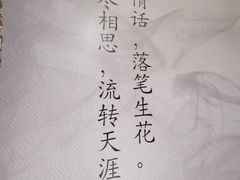 情话，落笔生花。
相思，流转天涯